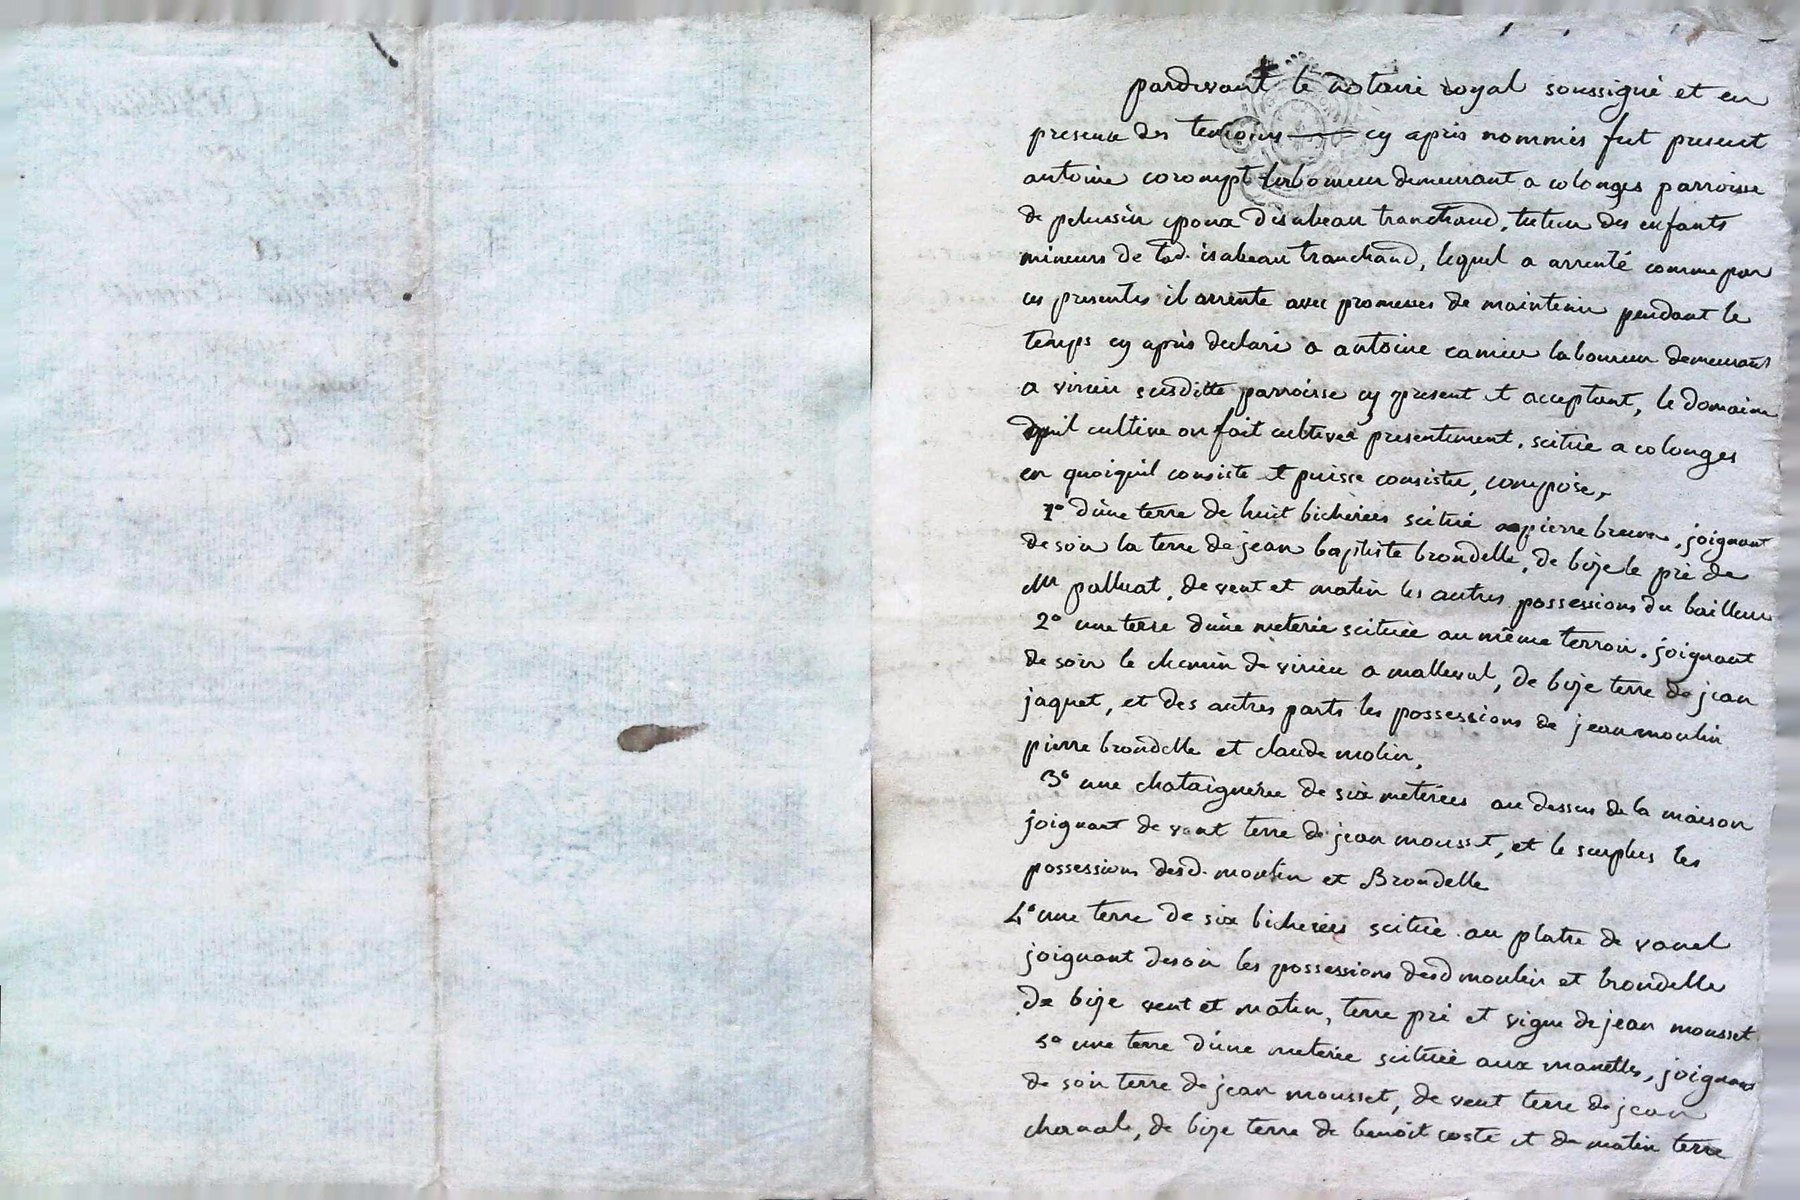 pardevant le notaire royal soussigné et en
presence des temoins cy apres nommés fut present
antoine corompt laboureur demeurant a colonges parroisse
de pelussin epoux d'isabeau tranchand, tuteur des enfants
mineurs de lad. isabeau tranchand, lequel a arrenté comme par
ces presentes il arrente avec promesses de maintenir pendant le
temps cy après declaré a antoine camier laboureur demeurant
a virieu susditte parroisse cy present et acceptant, le domaine
qu'il cultive ou fait cultiver presentement, scitué a colonges
en quoiquil consiste et puisse consister, composé,
1° d'une terre de huit bicherées scitué a pierre brune, joignant
de soir la terre de jean baptiste brondelle, de bize le pré de
Mr palluat, de vent et matin les autres possessions du bailleur
2° une terre d'une meterée scituée au même terroir, joignant
de soir le chemin de virieu a malleval, de bize terre de jean
jaquet, et des autres parts les possessions de jean moulin
pierre brondelle et claude molin,
3° une chataigneree de six meterées au dessus de la maison
joignant de vent terre de jean mousset, et le surplus les
possessions desd. moulin et Brondelle
4° une terre de six bicherées scitué au platre de vanel
joignant de soir les possessions desd moulin et brondelle
de bize vent et matin, terre pré et vigne de jean mousset
5° une terre d'une meterée scituée aux manettes, joignant
de soir terre de jean mousset, de vent terre de jean
de bize terre de benoit coste et de matin terre